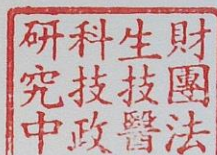 財團法
生技醫
科技政
研究中